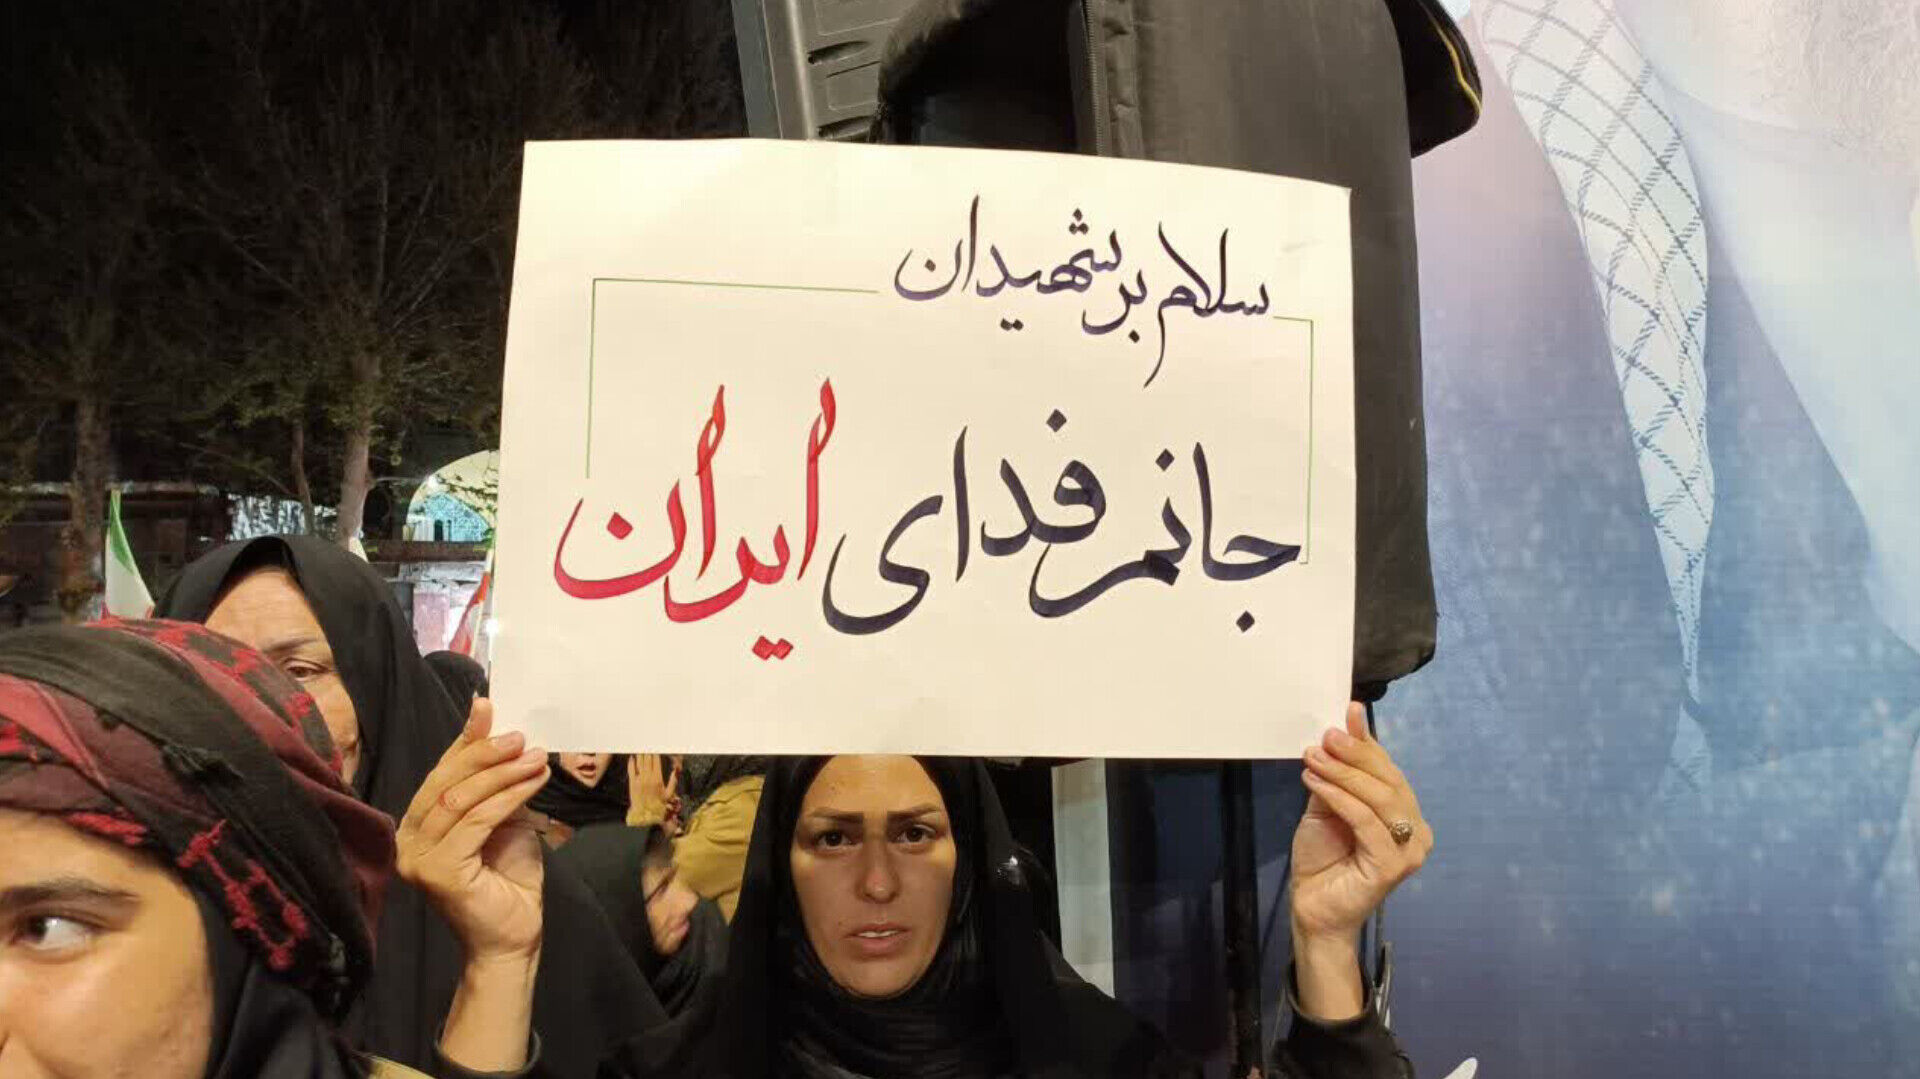 سلام بر شهیدان
جانم فدای ایران